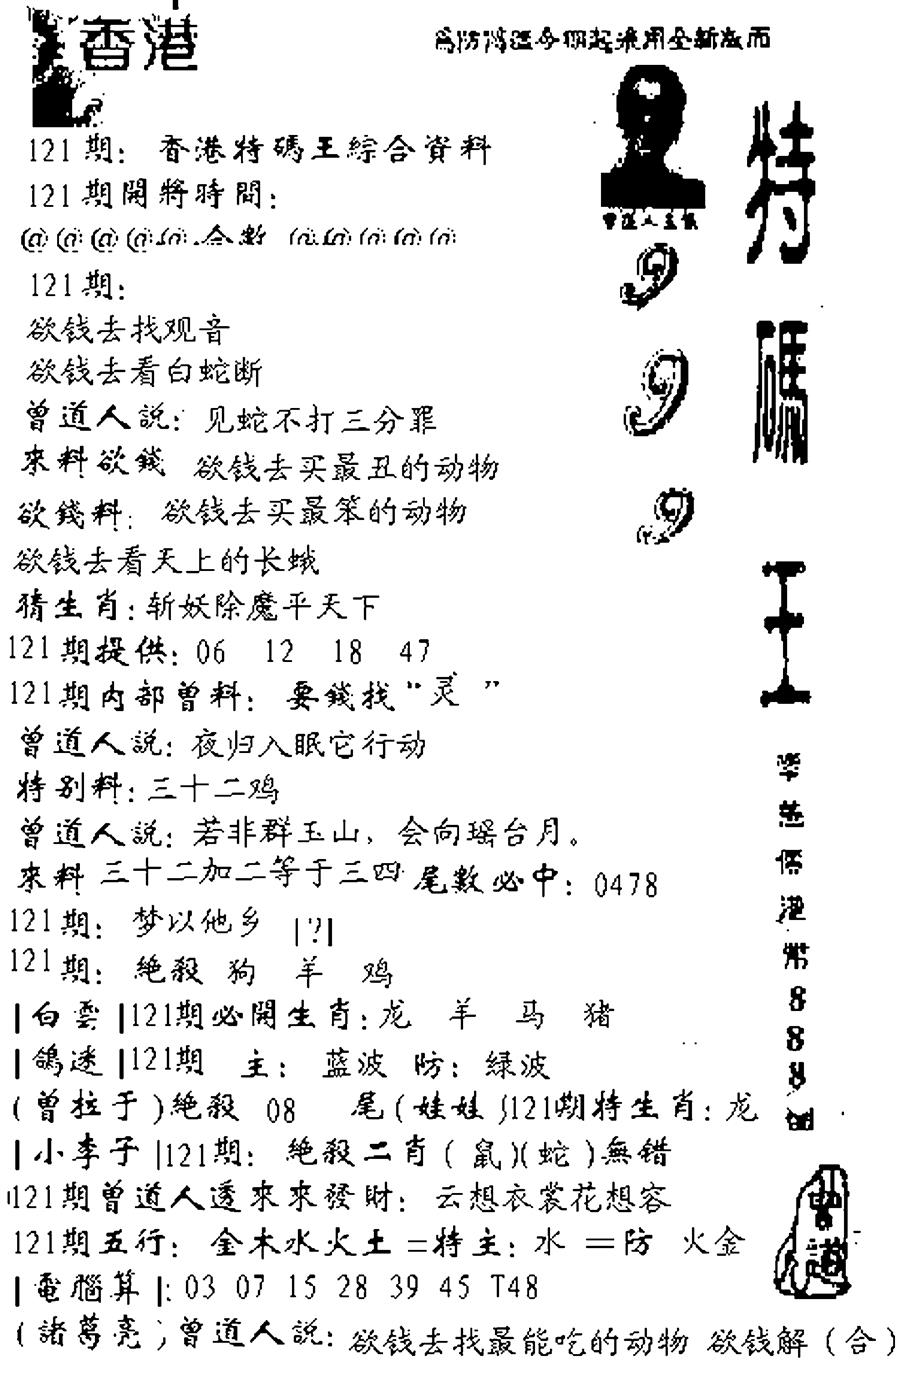 香港
為防鴻運今期起採用全新版面
121期: 香港特碼王綜合資料
121期開將時間:
@@@@ 合數
121期:
欲钱去找观音
欲钱去看白蛇断
曾道人説: 见蛇不打三分罪
來料欲錢 欲钱去买最丑的动物
欲錢料: 欲钱去买最笨的动物
欲钱去看天上的长蛾
猜生肖: 斩妖除魔平天下
121期提供: 06 12 18 47
121期内部曾料: 要錢找“灵”
曾道人説: 夜归入眠它行动
特别料: 三十二鸡
曾道人説: 若非群玉山, 会向瑶台月。
來料 三十二加二等于三四 尾數必中: 0478
121期: 梦以他乡 |?|
121期: 絶殺 狗 羊 鸡
|白雲|121期必開生肖: 龙 羊 马 猪
|鴿迷|121期 主: 蓝波 防: 绿波
(曾拉于)絶殺 08 尾(娃娃)121期特生肖: 龙
|小李子|121期: 絶殺二肖(鼠)(蛇)無错
121期曾道人透來來發財: 云想衣裳花想容
121期五行: 金木水火土=特主: 水 =防 火金
|電腦算|: 03 07 15 28 39 45 T48
(諸葛亮)曾道人説: 欲钱去找最能吃的动物 欲钱解(合)
999
特碼王
港幣888